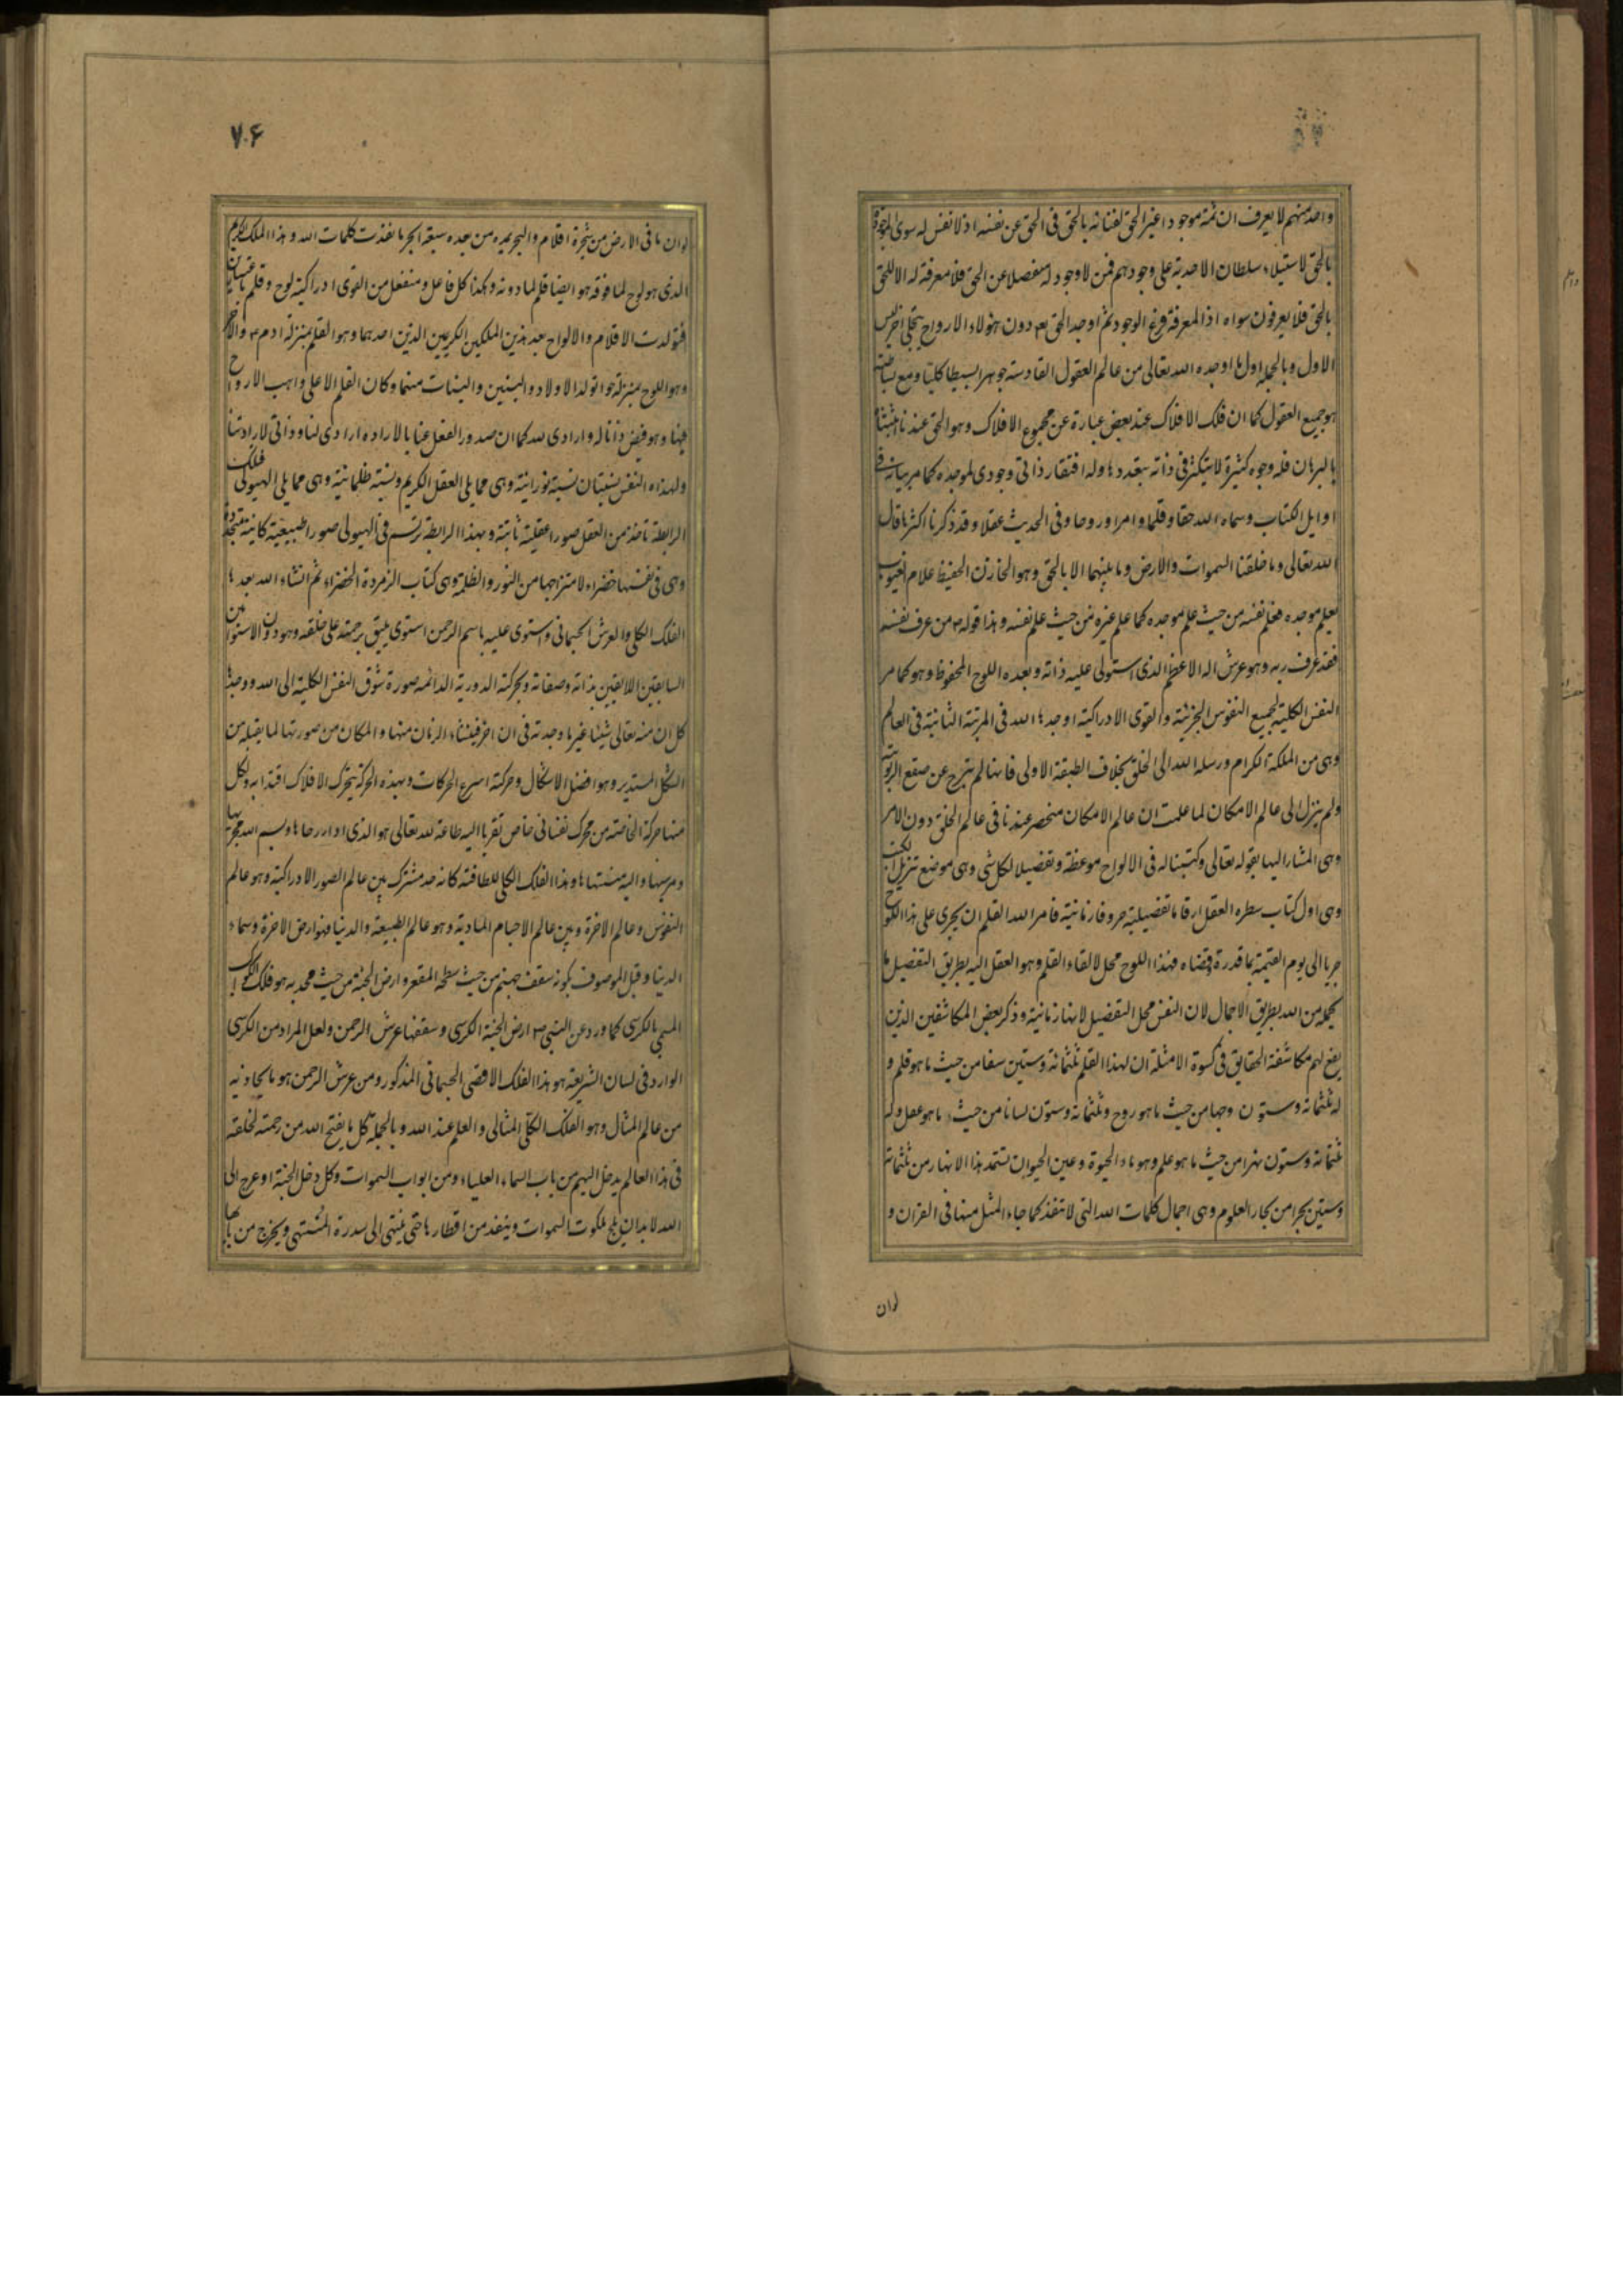 واحد منهم لا يعرف ان ثمة موجودا غير الحق لفنائه بالحق فى الحق عن نفسه اذ لا نفس له سوى الموجودة
بالحق لاستيلاء سلطان الاحدية على وجودهم فمن لا وجود له منفصلا عن الحق فلا معرفة له الا للحق
بالحق فلا يعرفون سواه اذ المعرفة فرع الوجود ثم اوجد الحق بعد دون هؤلاء الارواح بتجلى اخر ليس
الاول وبالجملة اول ما اوجده الله تعالى من عالم العقول القادسة جوهرا بسيطا كليا ومع بساطته
هو جميع العقول كما ان فلك الافلاك عند بعض عبارة عن مجموع الافلاك وهو الحق عندنا
بالبرهان فله وجوه كثيرة لا يتكثر فى ذاته بتعددها وله افتقار ذاتى وجودى لموجده كما مر بيانه فى
اوايل الكتاب وسماه الله حقا وقلما وامرا وروحا وفى الحديث عقلا وقد ذكرنا اكثرها قال
الله تعالى وما خلقنا السموات والارض وما بينهما الا بالحق وهو الخازن الحفيظ علام الغيوب
يعلم موجده فعلم نفسه من حيث علم موجده كما علم غيره من حيث علم نفسه وهذا قوله ص من عرف نفسه
فقد عرف ربه وهو عرش اله الاعظم الذى استولى عليه ذاته وبعده اللوح المحفوظ وهو كما مر
النفس الكلية لجميع النفوس الجزئية والقوى الادراكية اوجدها الله فى المرتبة الثانية فى العالم
وهى من الملئكة الكرام ورسله الله الى الخلق بخلاف الطبقة الاولى فانها لم يبرح عن صقع الربوبية
ولم ينزل الى عالم الامكان لما علمت ان عالم الامكان منحصر عندنا فى عالم الخلق دون الامر
وهى المشار اليها بقوله تعالى وكتبنا له فى الالواح موعظة وتفصيلا لكل شى وهى موضع تنزيل الكتب
وهى اول كتاب سطره العقل ارقاما تفضيلية حروفا زمانية فامر الله القلم ان يجرى على هذا اللوح
جريا الى يوم القيمة بما قدره وقضاه فهذا اللوح محل لالقاء القلم وهو العقل اليه بطريق التفصيل ما
يحمله من الله بطريق الاجمال لان النفس محل التفصيل لانها زمانية وذكر بعض المكاشفين الذين
يقع لهم مكاشفة الحقايق فى كسوة الامثلة ان لهذا القلم ثلثمائة وستين سنا من حيث ما هو قلم و
له ثلثمائة وستون وجها من حيث ما هو روح وثلثمائة وستون لسانا من حيث ما هو عقل وله
ثلثمائة وستون نهرا من حيث ما هو علم وهو ماء الحيوة وعين الحيوان تستمد هذا الانهار من ثلثمائة
وستين بحرا من بحار العلوم وهى اجمال كلمات الله التى لا تنفد كما جاء المثل منها فى القران و
لو ان
٧٠۶
لو ان ما فى الارض من شجرة اقلام والبحر يمده من بعده سبعة ابحر ما نفدت كلمات الله وهذا الملك الكريم
الذى هو لوح لما فوقه هو ايضا قلم لما دونه وهكذا كل فاعل ومنفعل من القوى ادراكية لوح وقلم باعتبارين
فتولدت الاقلام والالواح بعد هذين الملكين الكريمين الذين احدهما وهو القلم بمنزلة ادم ع والاخر
وهو اللوح بمنزلة حوا تولد الاولاد والبنين والبنات منهما وكان القلم الاعلى واهب الارواح
فيها وهو فيض ذاتا له وارادى لله كما ان صدور الفعل عنا بالارادة ارادى لنا وذاتى لارادتنا
ولهذه النفس نسبتان نسبة نورانية وهى مما يلى العقل الكريم ونسبة ظلمانية وهى مما يلى الهيولى فلك
الرابطة تاخذ من العقل صورا عقلية ثابتة وبهذا الرابطة ترتسم فى الهيولى صورا طبيعية كاينة متجددة
وهى فى نفسها خضراء لامتزاجها من النور والظلمة وهى كتاب الزمردة الخضراء ثم انشاء الله بعدها
الفلك الكلى والعرش الجسمانى واستوى عليه باسم الرحمن استوى يليق برحمته على خلقه وهو دون الاستوائين
السابقين اللايقين بذاته وصفاته وبحركته الدورية الدائمة صورة شوق النفس الكلية الى الله ووجدها
كل ان منه تعالى شيئا غير ما وجدته فى ان اخر فينشاء الزمان منها والمكان من صورتها لما يقبله من
الشكل المستدير وهو افضل الاشكال وحركته اسرع الحركات وبهذه الحركة يتحرك الافلاك اقتدا به ولكل
منها حركة الخاصة من محرك نفسانى خاص تقربا اليه طاعة لله تعالى هو الذى ادار رحاها وبسم الله مجريها
ومرسيها واليه منتهاها وهذا الفلك الكلى للطافته كانه حد مشترك بين عالم الصور الادراكية وهو عالم
النفوس وعالم الاخرة وبين عالم الاجسام المادية وهو عالم الطبيعة والدنيا فهو ارض الاخرة وسماء
الدنيا وقيل الموصوف بكونه سقف جهنم من حيث سطحه المقعر وارض الجنة من حيث محدبه هو فلك الكواكب
المسمى بالكرسى كما ورد عن النبى ص ارض الجنة الكرسى وسقفها عرش الرحمن ولعل المراد من الكرسى
الوارد فى لسان الشريعة هو هذا الفلك الاقصى الجسمانى المذكور ومن عرش الرحمن هو ما يحاذيه
من عالم المثال وهو الفلك الكلى المثالى والعلم عند الله وبالجملة كل ما يفتح الله من رحمته لخلقه
فى هذا العالم يدخل اليهم من باب السماء العلياء ومن ابواب السموات وكل دخل الجنة او عرج الى
الله لا بد ان يلج ملكوت السموات وينفذ من اقطارها حتى ينتهى الى سدرة المنتهى ويخرج من بابها